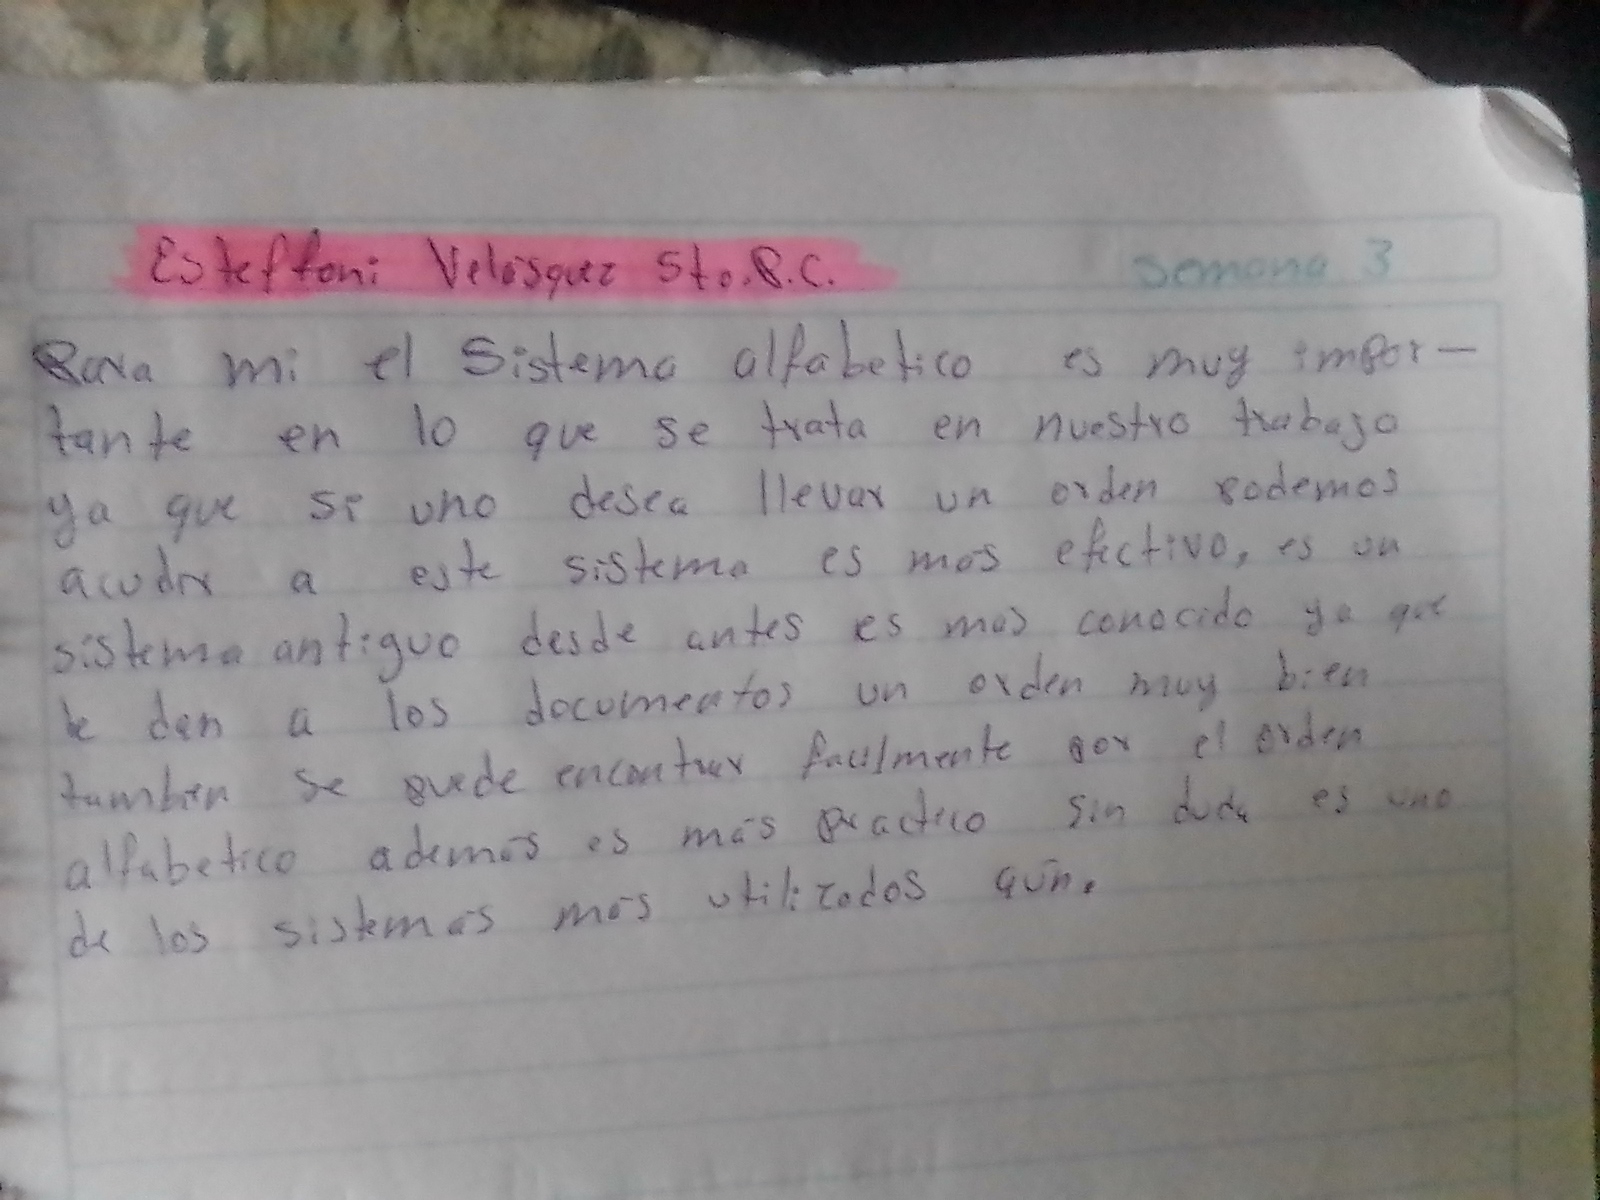 Esteffani Velásquez 5to. P.C. Semana 3
Para mi el Sistema alfabetico es muy impor-
tante en lo que se trata en nuestro trabajo
ya que si uno desea llevar un orden podemos
acudir a este sistema es mas efectivo, es un
sistema antiguo desde antes es mas conocido ya que
le dan a los documentos un orden muy bien
tambien se puede encontrar facilmente por el orden
alfabetico ademàs es màs practico sin duda es uno
de los sistemas màs utilizados aún.